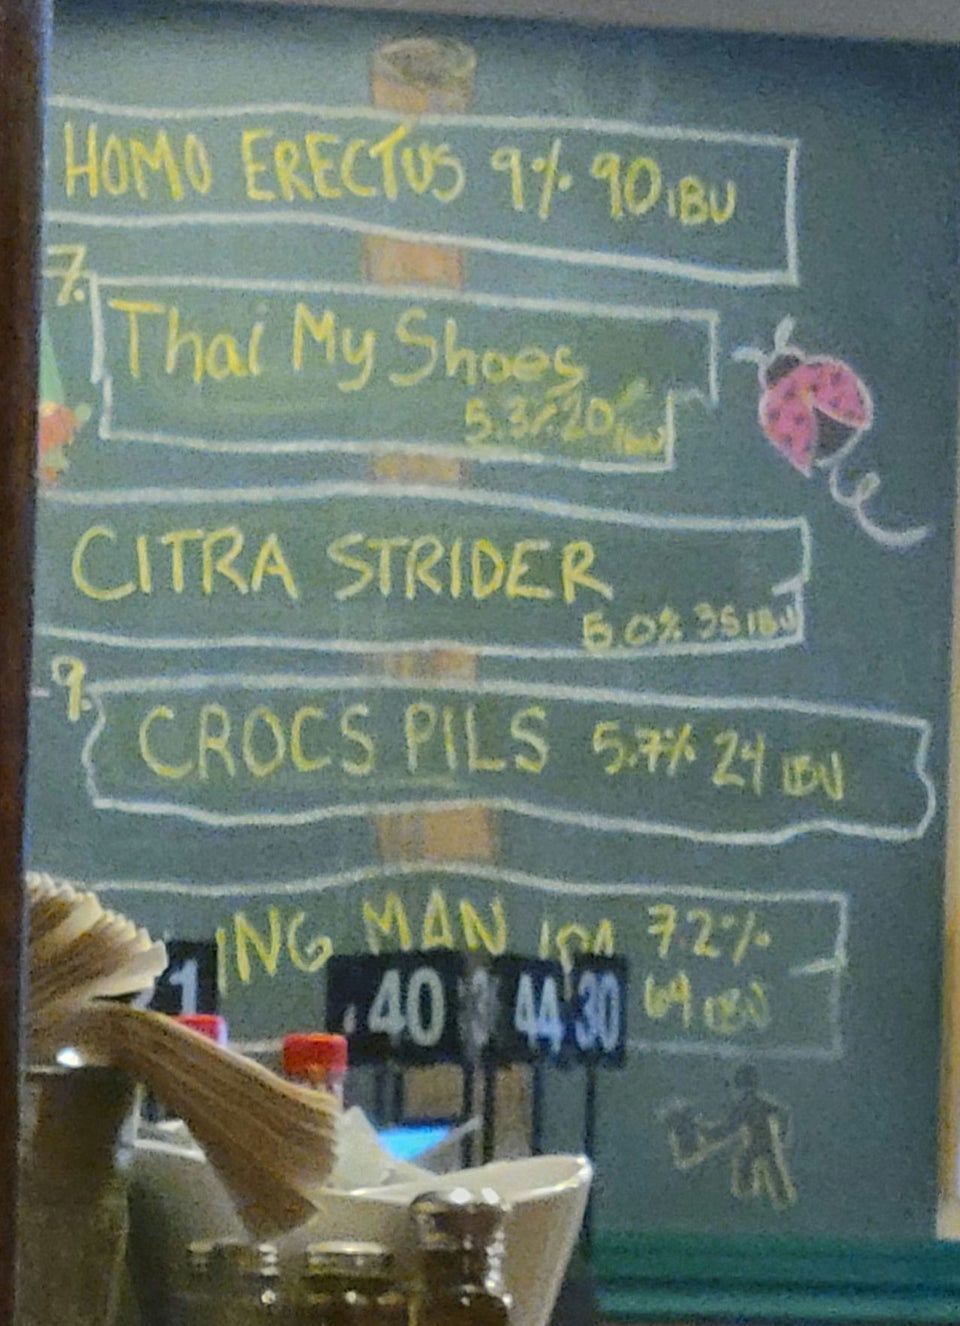 HOMO ERECTUS 9% 90 IBU
7.
Thai My Shoes
5.3% 20 IBU
CITRA STRIDER
5.0% 35 IBU
9.
CROCS PILS 5.7% 24 IBU
ING MAN IPA 7.2%
69 IBU
1
40
44 30